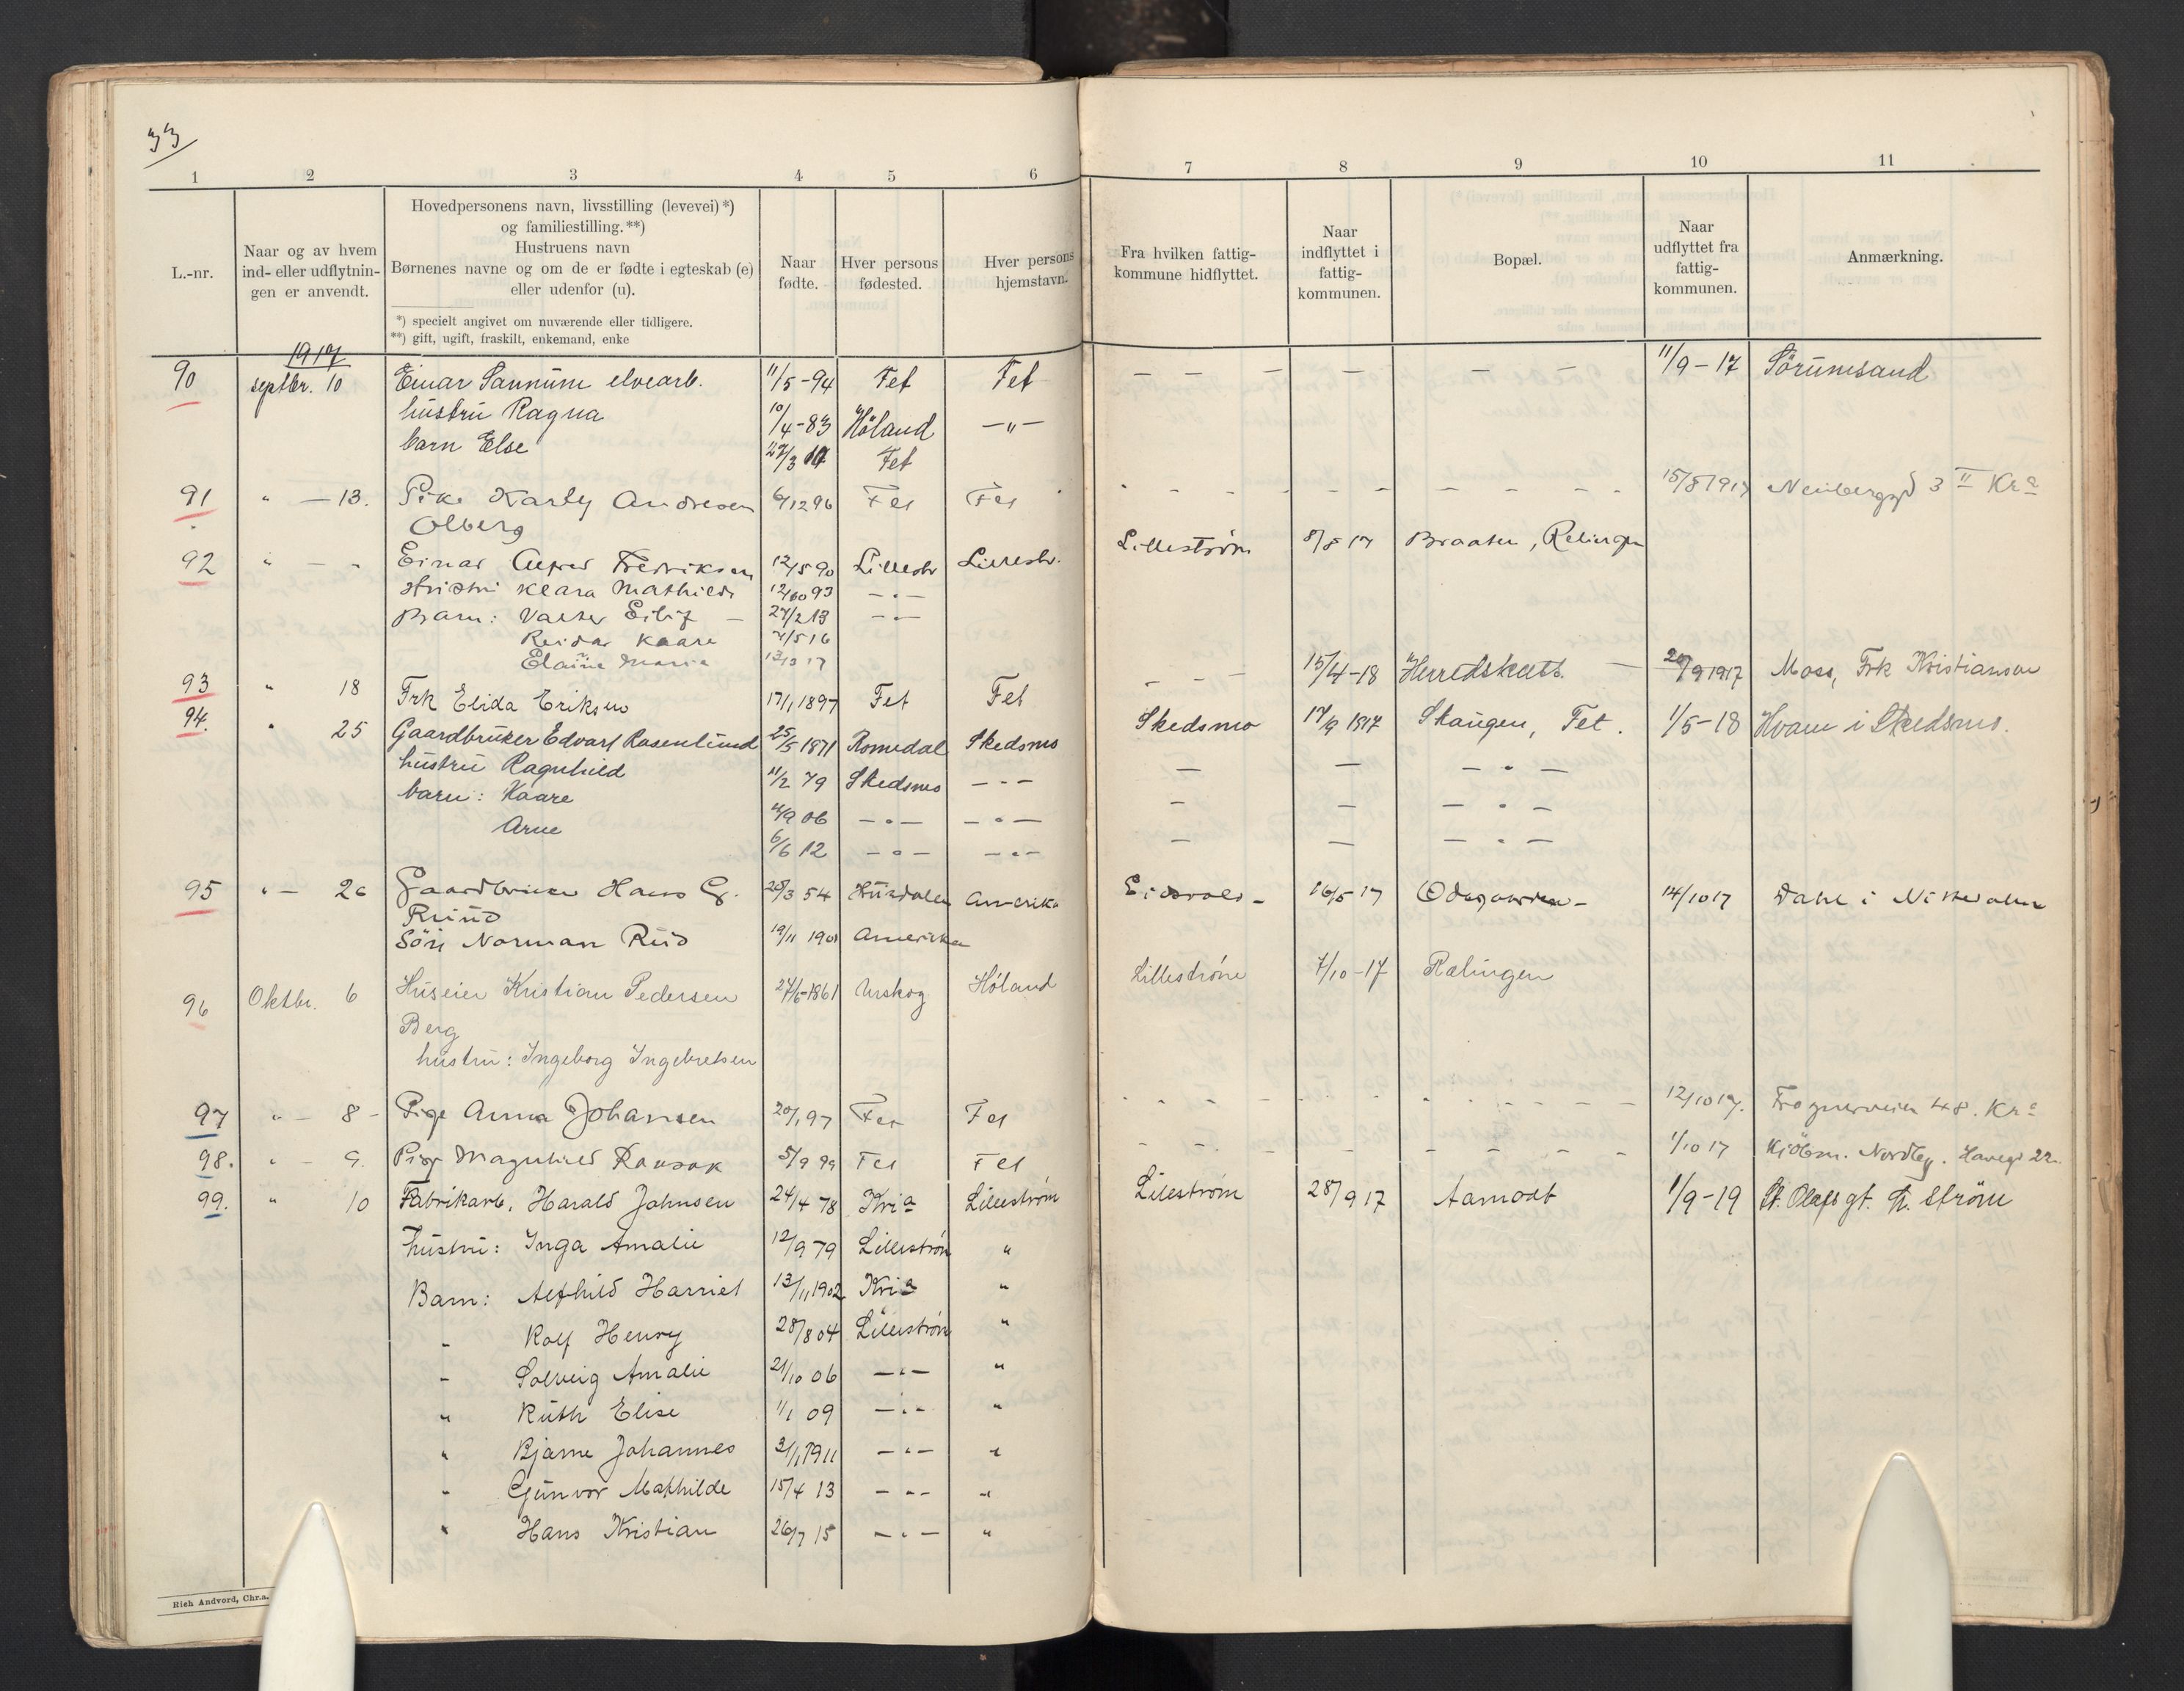 33
1 2 3 4 5 6 7 8 9 10 11
L.-nr.
Naar og av hvem
ind- eller udflytnin-
gen er anvendt.
Hovedpersonens navn, livsstilling (levevei) *)
og familiestilling. **)
Hustruens navn
Børnenes navne og om de er fødte i egteskab (e)
eller udenfor (u).
*) specielt angivet om nuværende eller tidligere.
**) gift, ugift, fraskilt, enkemand, enke
Naar
fødte.
Hver persons
fødested.
Hver persons
hjemstavn.
Fra hvilken fattig-
kommune hidflyttet.
Naar
indflyttet i
fattig-
kommunen.
Bopæl.
Naar
udflyttet fra
fattig-
kommunen.
Anmærkning.
1917
90 septbr. 10 Einar Sannum elvearb. 11/5-94 Fet Fet — — — — — — — 11/9-17 Sørumsand
hustru Ragna 10/4-83 Høland —"—
barn Else 27/3 17 Fet
91 " — 13. Pike Karly Andresen 6/12 96 Fet Fet - - - - - - - - - - 15/8 1917 3 II Kra
Olberg
92 " — " Einar Alfred Fredriksen 12/5 90 Lillestr Lillestr. Lillestrøm 8/8 17 Braaten, Relingen
Hustru Klara Mathilde 12/10 93 —"—
Barn: Valter Eilif — 27/2 13 —"—
Reidar Kaare 4/5 16
Maria 13/3 17
93 " 18 Frk Elida Eriksen 17/1 1897 Fet Fet — — — 15/4-18 Herredskass. — 20/9 1917 Moss, Frk Kristiansen
94. " 25 Gaardbruker Edvart Rosenlund 25/5 1871 Romedal Skedsmo Skedsmo 17/9 1917 Skaugen, Fet. 1/5-18 Hvam i Skedsmo.
hustru Ragnhild 11/2 79 Skedsmo —"— — — — " —
barn: Kaare 4/9 06 —"— —"— — — — " —
Arne 6/6 12 —"— —"— — — — " —
95 " — 26 Gaardbruker Hans G. 28/3 54 Hurdalen Amerika Eidsvold - 16/5 17 Ødegaarden - 14/10 17 Dahl i Nittedalen
Ruud
Søn Norman Rud 19/11 1901 Amerika
96 Oktbr. 6 Huseier Kristian Pedersen 27/6-1861 Urskog Høland Lillestrøm 7/10-17 Rælingen
Berg
hustru: Ingeborg Ingebretsen
97 " — 8 - Pige Anna Johansen 20/1 97 Fet Fet - - - - - - - - - - 12/10 17. Frognerveien 48. Kra
98. " — 9. Pige Magnhild Ramsok 5/9 99 Fet Fet - - - - - - - - - 1/10 17 Kjøbm. Nordby. Haveg. 22.
99. " 10 Fabrikarb. Harald Johnsen 24/4 78 Kria Lillestrøm Lillestrøm 28/9 17 Aamodt 1/9-19 St. Olafs gt. L. strøm
hustru: Inga Amalie 12/9 79 Lillestrøm "
Barn: Alfhild Harriet 13/11 1902 Kria "
" Rolf Henry 28/8 04 Lillestrøm "
" Solveig Amalie 21/10 06 —"— "
" Ruth Elise 1/1 09 —"— "
" Bjarne Johannes 3/1 1911 —"— "
" Gunvor Mathilde 15/4 13 —"— "
" Hans Kristian 26/7 15 —"— "
Rich Andvord, Chr.a.